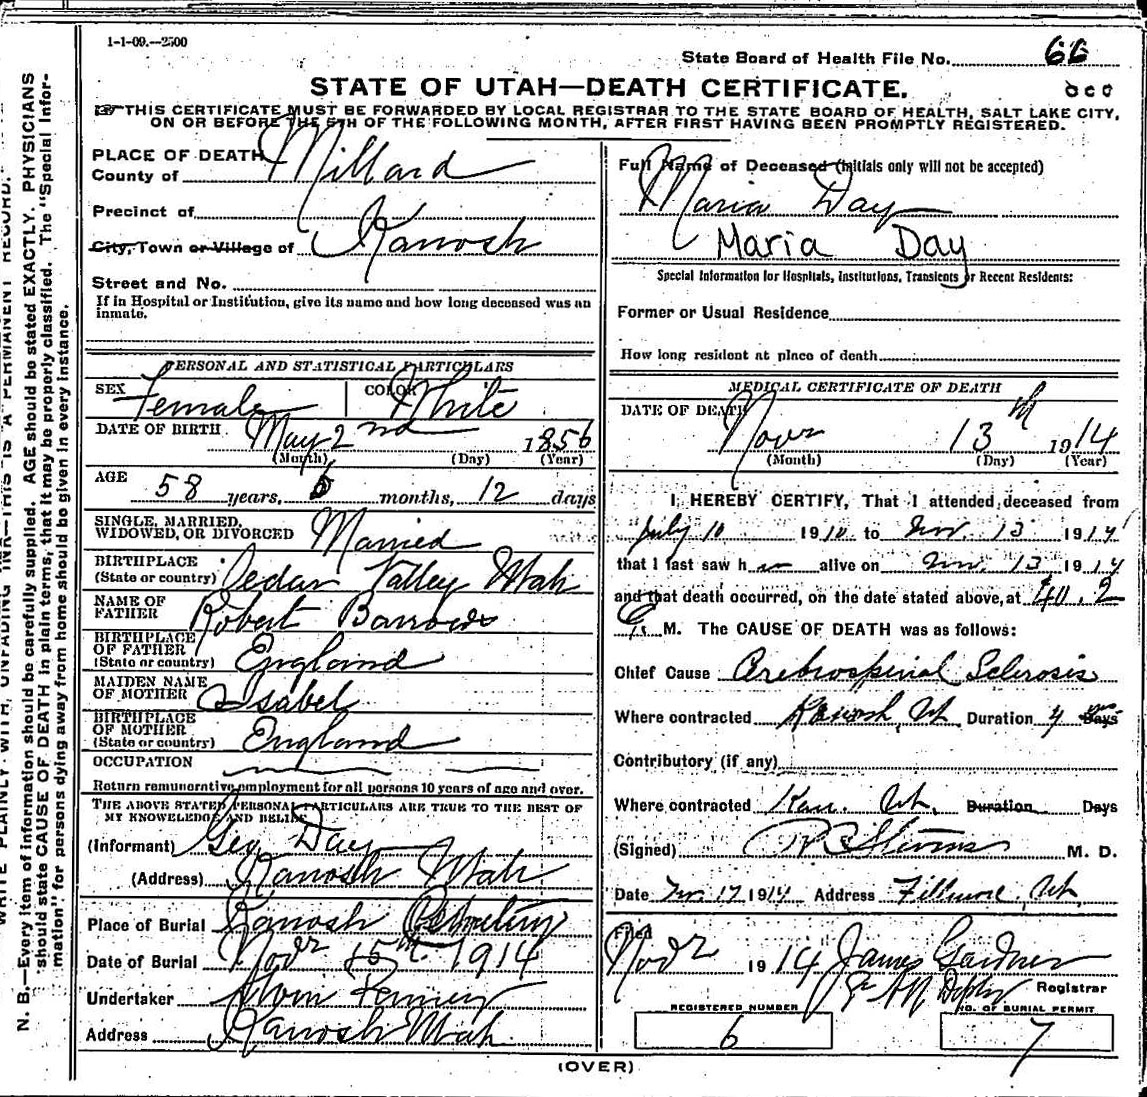 1-1-09.—2500
State Board of Health File No. 66
STATE OF UTAH—DEATH CERTIFICATE.
THIS CERTIFICATE MUST BE FORWARDED BY LOCAL REGISTRAR TO THE STATE BOARD OF HEALTH, SALT LAKE CITY,
ON OR BEFORE THE 5TH OF THE FOLLOWING MONTH, AFTER FIRST HAVING BEEN PROMPTLY REGISTERED.
PLACE OF DEATH
County of Millard
Precinct of
City, Town or Village of Kanosh
Street and No.
If in Hospital or Institution, give its name and how long deceased was an
inmate.
PERSONAL AND STATISTICAL PARTICULARS
SEX Female COLOR White
DATE OF BIRTH May 2nd 1856
(Month) (Day) (Year)
AGE 58 years, 6 months, 12 days
SINGLE, MARRIED,
WIDOWED, OR DIVORCED Married
BIRTHPLACE
(State or country) Cedar Valley Utah
NAME OF
FATHER Robert Barrows
BIRTHPLACE
OF FATHER
(State or country) England
MAIDEN NAME
OF MOTHER Isabel
BIRTHPLACE
OF MOTHER
(State or country) England
OCCUPATION
Return remunerative employment for all persons 10 years of age and over.
THE ABOVE STATED PERSONAL PARTICULARS ARE TRUE TO THE BEST OF
MY KNOWLEDGE AND BELIEF
(Informant) Geo Day
(Address) Kanosh Utah
Place of Burial Kanosh Cemetery
Date of Burial Novr 15th 1914
Undertaker Alvin Penney
Address Kanosh Utah
Full Name of Deceased (Initials only will not be accepted)
Maria Day
Maria Day
Special Information for Hospitals, Institutions, Transients or Recent Residents:
Former or Usual Residence
How long resident at place of death
MEDICAL CERTIFICATE OF DEATH
DATE OF DEATH Novr 13th 1914
(Month) (Day) (Year)
I HEREBY CERTIFY, That I attended deceased from
July 10 1910 to Nov. 13 1914
that I last saw her alive on Nov. 13 1914
and that death occurred, on the date stated above, at
M. The CAUSE OF DEATH was as follows:
Chief Cause Cerebrospinal Sclerosis
Where contracted Kanosh, Ut. Duration 4 Days
Contributory (if any)
Where contracted Kan. Ut. Duration Days
(Signed) Stevens M. D.
Date Nov. 17 1914 Address Fillmore, Ut.
Filed
Novr 1914 James Gardner
Registrar
REGISTERED NUMBER
6
NO. OF BURIAL PERMIT
7
(OVER)
WRITE PLAINLY WITH UNFADING INK—THIS IS A PERMANENT RECORD.
N. B.—Every item of information should be carefully supplied. AGE should be stated EXACTLY. PHYSICIANS
should state CAUSE OF DEATH in plain terms, that it may be properly classified. The "Special Infor-
mation" for persons dying away from home should be given in every instance.